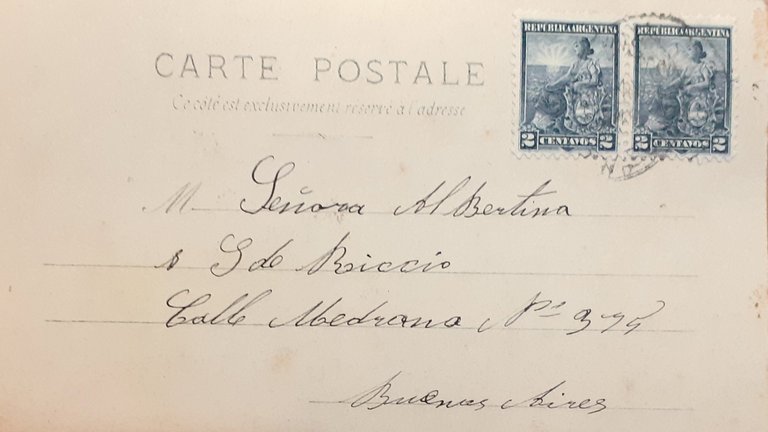 REPUBLICA ARGENTINA REPUBLICA ARGENTINA
2 CENTAVOS 2 2 CENTAVOS 2
CARTE POSTALE
Ce côté est exclusivement réservé à l'adresse
M Señora Albertina
S de Riccio
Calle Medrano Nº
Buenos Aires